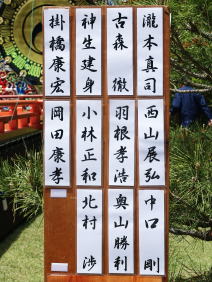 瀧本真司
西山展弘
中口剛
古森徹
羽根孝浩
奥山勝利
神生建身
小林正和
北村渉
掛橋康宏
岡田康孝